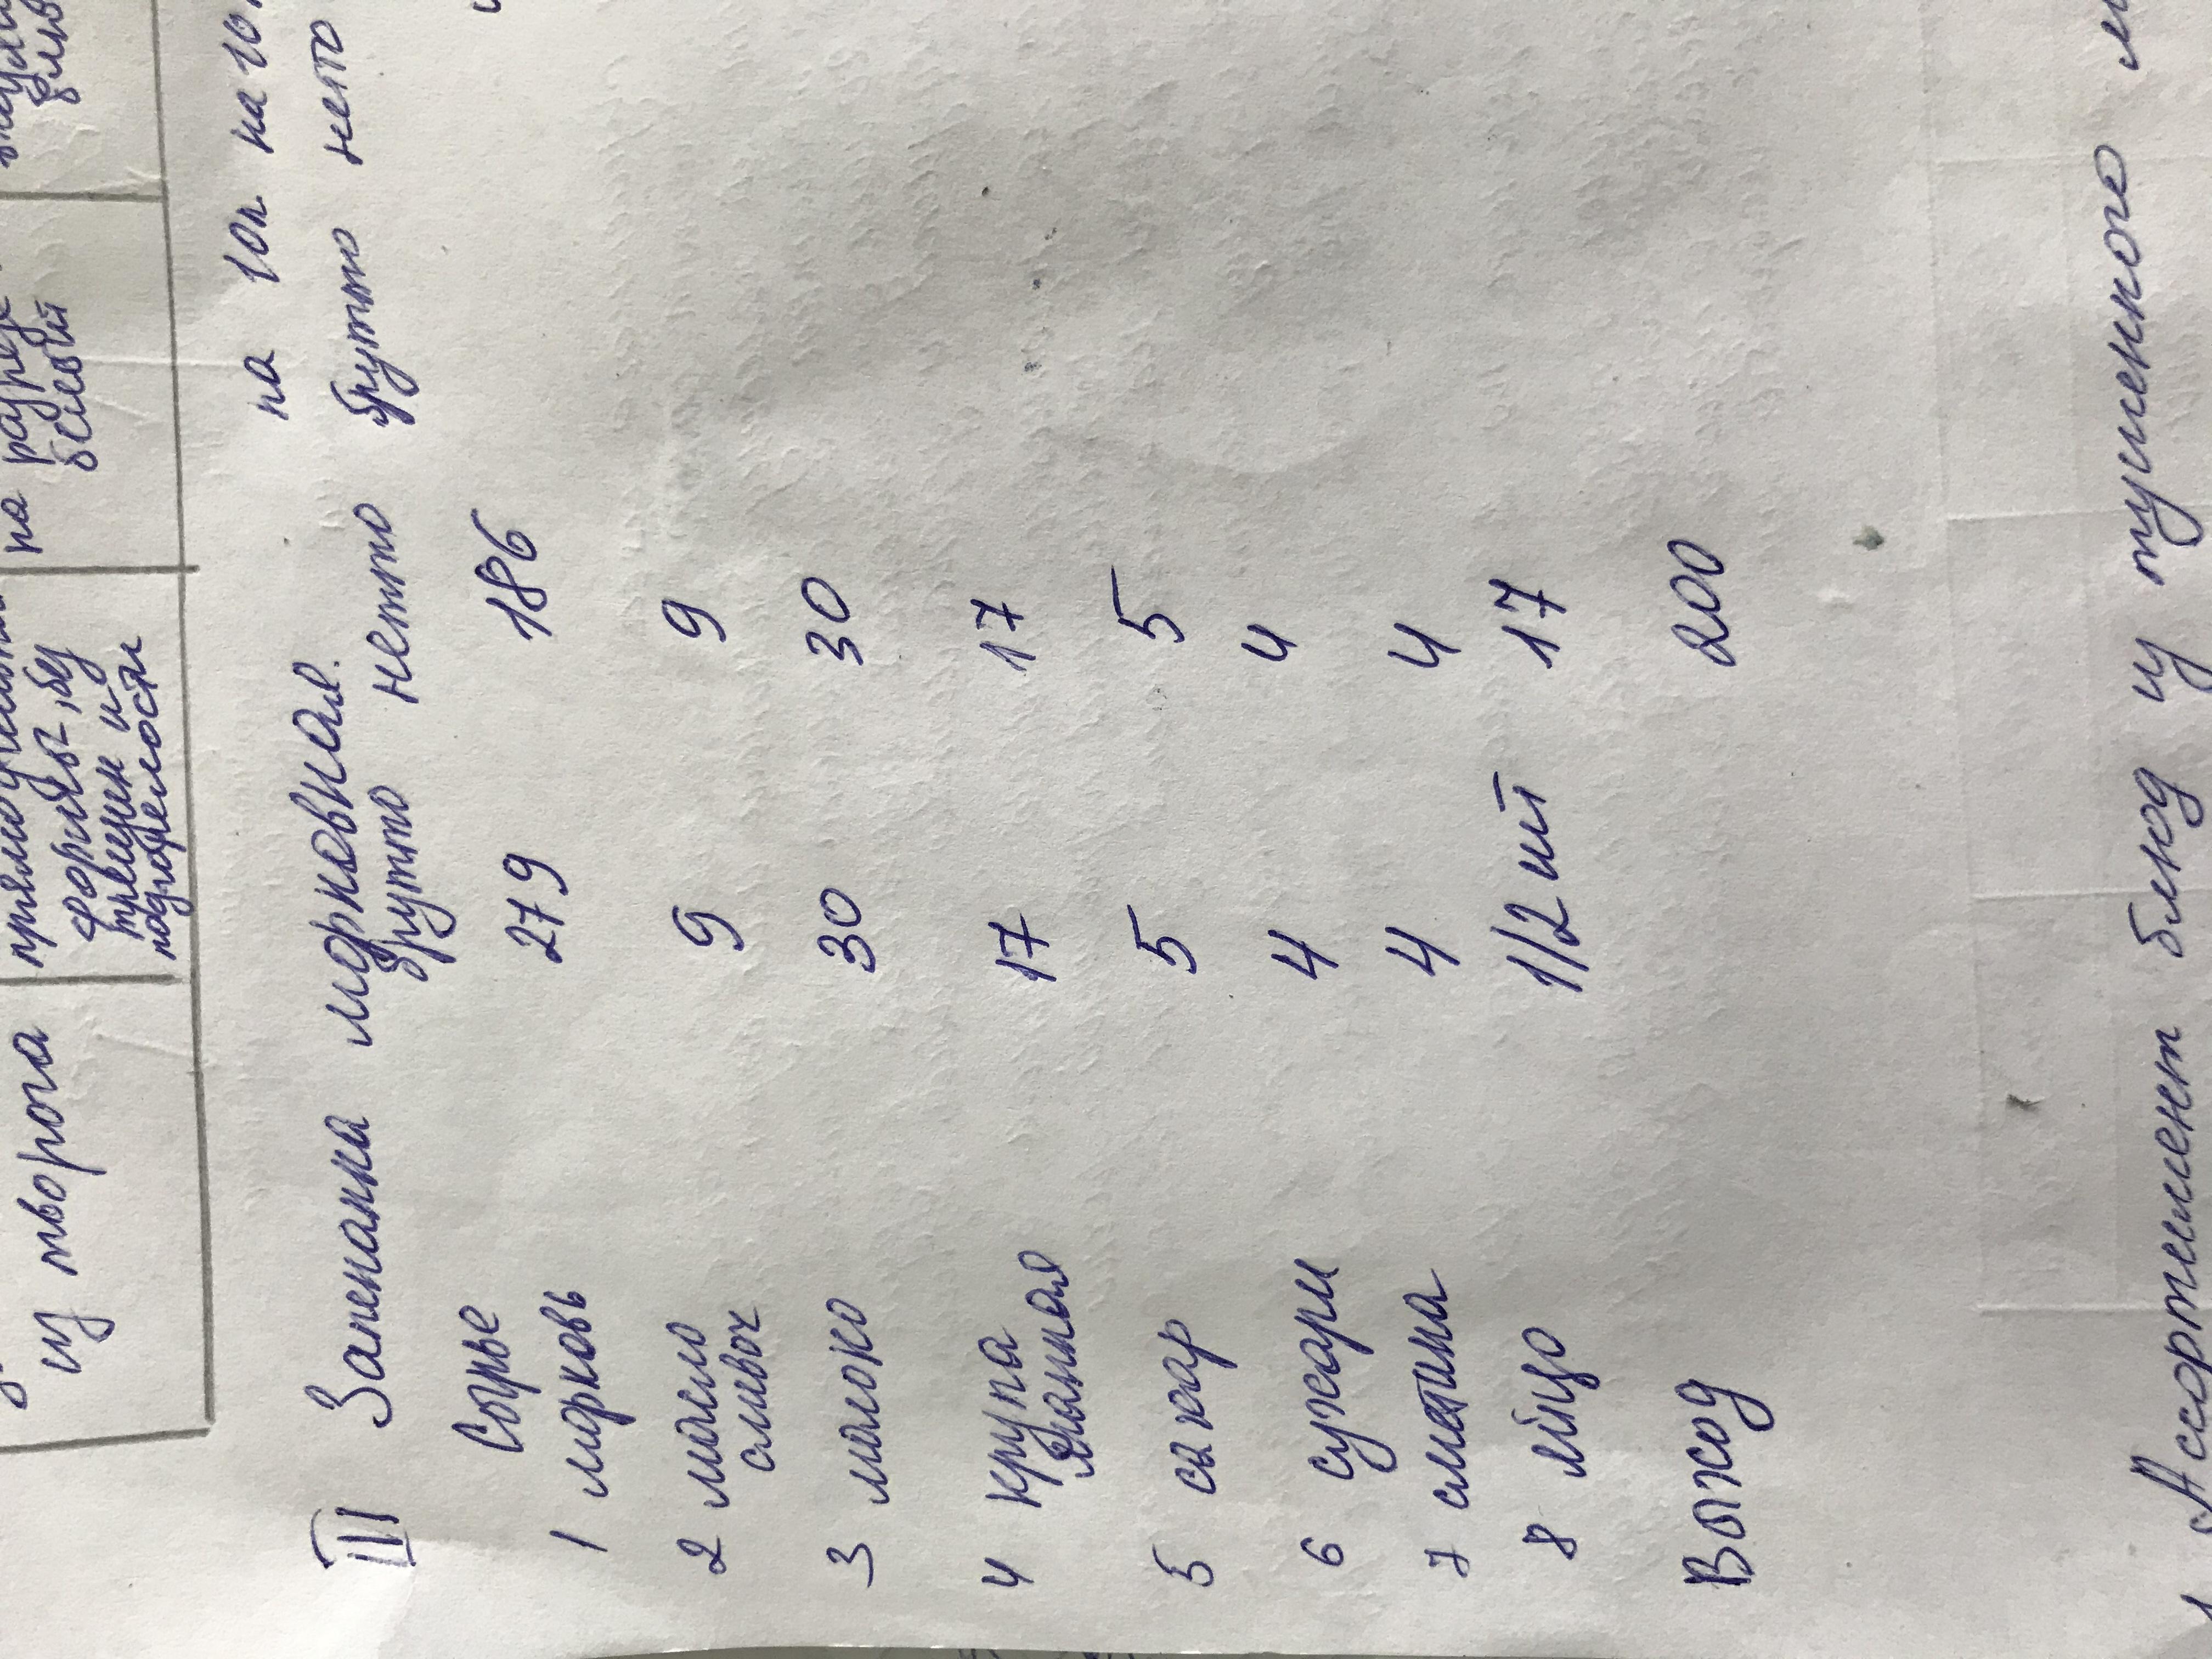 из творога
формы, без
трещин и
подгорелости
на разрезе
белый
на 10п на 10
III Запеканка морковная.
Сырье брутто нетто брутто нетто
1 морковь 279 186
2 масло 9 9
сливоч
3 молоко 30 30
4 крупа 17 17
манная
5 сахар 5 5
6 сухари 4 4
7 сметана 4 4
8 яйцо 1/2 шт 17
Выход 200
Ассортимент блюд из тушенного